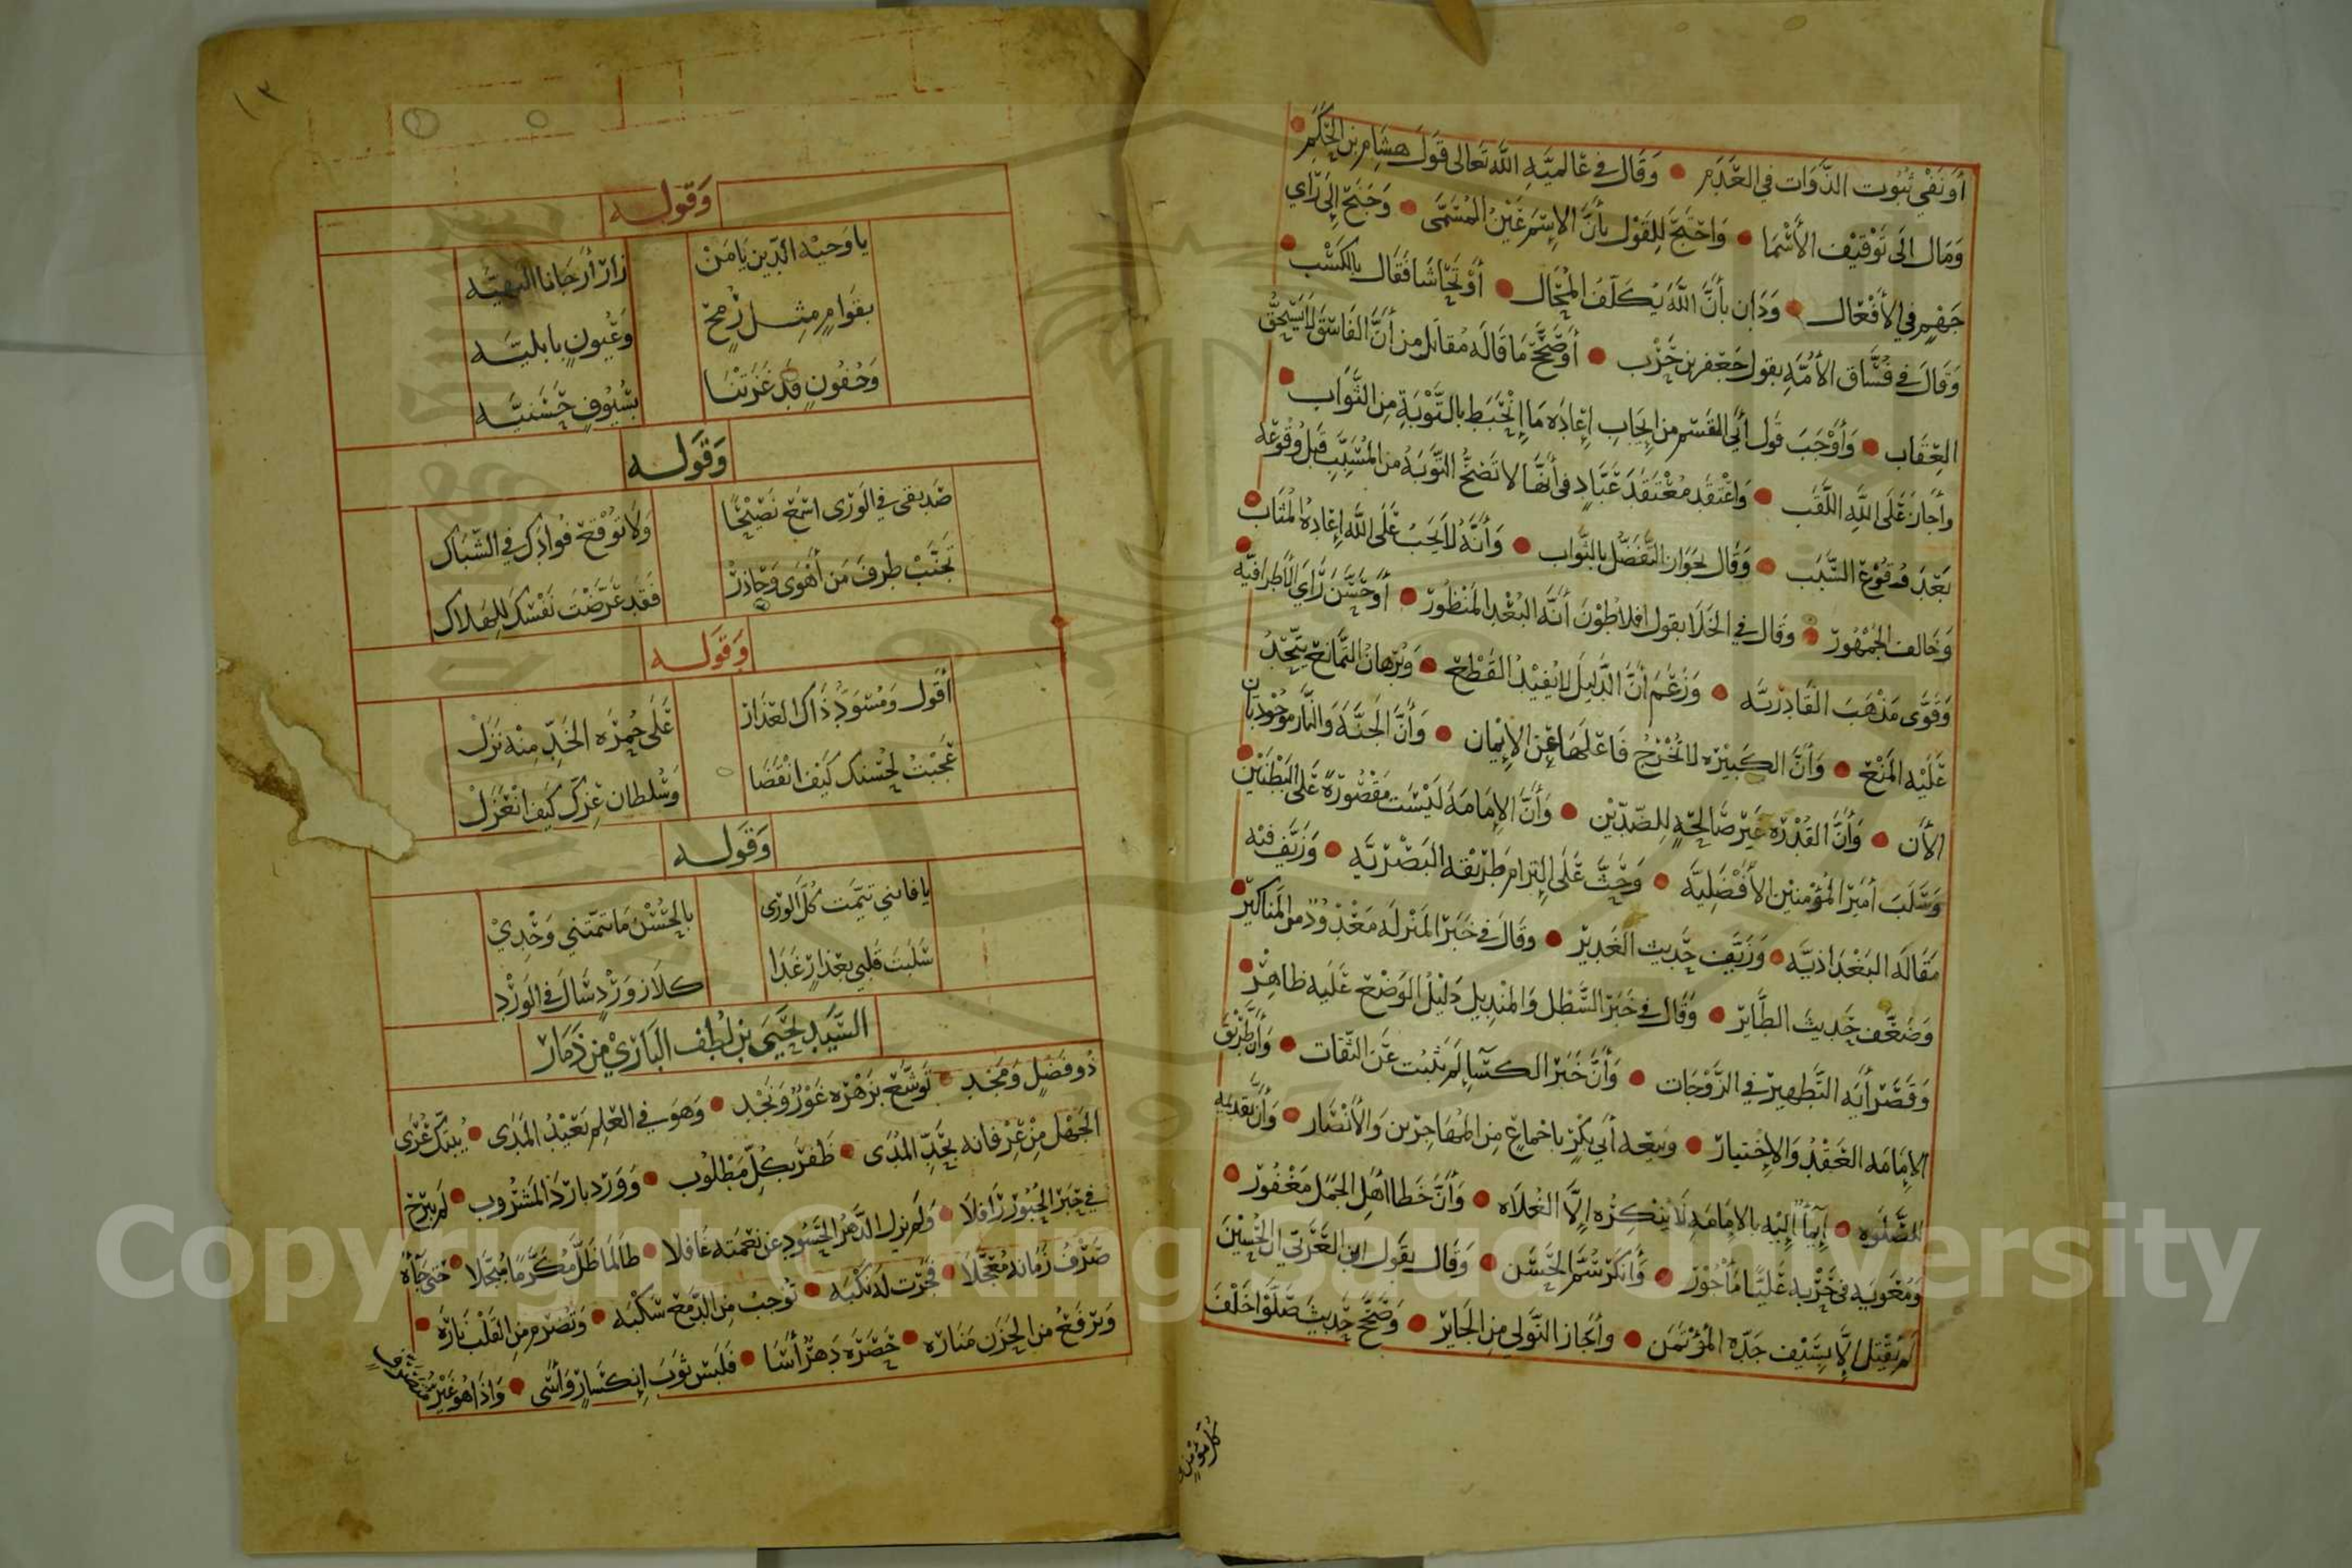 أَوْ نَفْي ثبُوت الذَّوَات في العَدَم • وَقَال في عَالميَّة الله تَعَالى قَولَ هشَام بن الحَكَم •
وَمَال الَى تَوْقيْف الأَسْمَا • وَاحْتَجَّ لِلقَوْل بأنَّ الإسْمَ عَيْنُ المُسَمَّى • وَجَنَحَ إلَى رَاي
جَهْم في الأَفْعَال • وَدَان بأَنَّ اللَّهَ يُكَلِّف المُحَال • أَوْ تَحَاشَا فَقَال بالكَسْب •
وَقَالَ في فُسَّاق الأُمَّة بقول جَعْفر بن حَرْب • أَوْصَحَّحَ مَا قَالَه مُقَاتل من أنَّ الفَاسقَ لا يَسْتَحقُّ
العِقَاب • وَأَوْجَبَ قَول أَبي القسم من إيجَاب إعَادَه مَا إنْحَبَط بالتَّوْبَة مِن الثَّوَاب •
وأجَازَ عَلَى اللَّهِ اللَّقَب • وَاعْتَقَد مُعْتَقَدَ عَبَّادٍ في أنَّهَا لا تَصحُّ التَّوبَهُ من المُسَبَّب قَبلَ وُقُوعْه
بَعْدَ وُقوْع السَّبَب • وَقَال بجَوَاز التَّفَضُّل بالثَّواب • وَأَنَّهُ لاَ يَجبُ عَلَى اللَّه إعَادهُ المُثَاب •
وَخَالف الجُمْهُور • وَقَال في الخَلَا بقول افلاطُوْن أنَّه البُعْد المَنْظُوْر • أَوْ حَسَّنَ رَايَ الأطرافيَّه
وَقَوَّى مَذْهَبَ القَادِريَّه • وَزَعَمَ أنَّ الدَّليلَ لا يُفيْد القَطْع • وَبُرْهَان التَّمَانع يَتَّجهُ
عَلَيْه المَنْع • وَأنَّ الكَبيْرَه لا تُخْرجُ فَاعلَهَا عَن الإيْمان • وَأنَّ الجَنَّةَ وَالنَّار موْجُوْدتَان
الأن • وَأنَّ القُدْرَه غَيْر صَالحَةٍ لِلضِّدَّيْن • وَأنَّ الإمَامَةَ لَيْسَت مَقْصُوْرَةً عَلى البَطْنَيْن •
وَسَلَبَ أميْرَ المُؤمنيْن الأَفْضَليَّه • وَحَثَّ عَلَى إلتزام طَرِيْقَة البَصْريَّه • وَزَيَّف فيْه
مَقَالَه البَغْدَاذيَّه • وَزَيَّف حَديث الغَديْر • وقَالَ في خَبَر المَنْزلَه مَعْدُوْد من المَنَاكيْر •
وَضَعَّف حَديثَ الطَّائر • وَقَال في خَبَر السَّطْل وَالمنْديل دَليْلُ الوَضْع عَلَيه ظَاهِرْ •
وَقَصَر أيَه التَّطهيْر في الزَّوْجَات • وَأنَّ خَبَرَ الكسَآ لَم يَثبُت عَن الثّقَات • وَأنَّ طَرْيقَ
الإمَامَه العَقْدُ وَالإخْتيَار • وَبيعَه أبي بَكْرٍ باجْمَاعٍ مِن المُهَاجرين وَالأنْصَار • وَأنَّ تقدْيمَه
للصَّلَوه • إيمَأٌ إليْه بالإمَامَه لَا يُنْكرُه إلَّا الغُلَاه • وَأنَّ خَطا أهْل الجَمَل مَغْفُور •
وَمُعَويَه في حَرْبه عَليًّا مَاْجُوْر • وَأنْكَرَ سُمَّ الحَسَن • وَقَال بقَول ابن العَرَبي أنَّ الحُسَيْنَ
لَم يُقْتَل إلَّا بسَيْف جَدِّه المُؤْتَمَن • وأجَاز التَّولِي مِن الجَائر • وَصَحَّحَ حَديثَ صَلُّوا خَلْفَ
كُلِّ مُؤْمن
١٣
وَقوله
يا وَجيْه الدِّين يَا مَنْ زَارَ أَرْجَانا البَهيَّه
بقَوَامٍ مِثل رُمحٍ وَعُيونٍ بابليَّه
وَجُفُونٍ قَد غَزَتْنَا بسُيُوفٍ حَسَنيَّه
وَقوَله
صَديقي في الوَرَى اسْمَع نَصيْحًا وَلَا تُوْقع فُوادَك في الشّبَاك
تَجَنَّبْ طرفَ مَن أَهْوَى وَحَاذرْ فَقَد عَرَّضْتَ نَفْسَكَ للهَلَاك
وَقوَله
أَقول وَمُسْوَدُّ ذَاك العذَار عَلَى حُمرَه الخَدِّ مِنْه نَزَلْ
عَجِبْتُ لِحُسْنك كَيْف انْقَضَا وَسُلطَان عِزّك كَيْف انْعَزَلْ
وَقوَله
يا فاتني تيَّمت كُلَّ الوَرَى بالحُسْن مَا تيَّمْتني وَحْدِيْ
سَلَبتَ قَلبي بعذَارٍ غَدَا كلَازوَرْدٍ سَالَ في الوَرْد
السَّيّد يَحْيَى بن لُطف البَاريْ من ذَمَار
ذُو فَضْلٍ وَمَجْد • تَوشَّعَ بزَهْره غَوْرٌ وَنَجْد • وَهوَ في العلْم بَعَيْدُ المَدَى • يُبتّك عُرَى
الجَهْل مِن عِرْفانه بحَدِّ المُدَى • ظَفرَ بكُلِّ مَطْلُوب • وَوَرَد بَاردَ المَشْرُوب • لَم يَبْرَح
في حبَر الحُبُوْر رَافلَا • وَلم يزل الدَّهرُ الحَسُود عن نعْمَته غَافلَا • طَالَما ظَلَّ مُكَرَّمَا مُبَجَّلا • حَتى جَآهُ
صَرْفُ زَمَانه مُعَجَّلَا • فَجَرَت لَهُ نَكْبَه • تُوجبُ من الدَّمع سَكْبَه • وَتُضرم مِن القَلْب نَارَه •
وَترْفَعُ من الحَزَن مَنَارَه • حَصَرَه دَهْرٌ أسَا • فَلَبسَ ثَوبَ إنكسَارٍ وَأسَى • وَاذَا هُوَ غَيْر